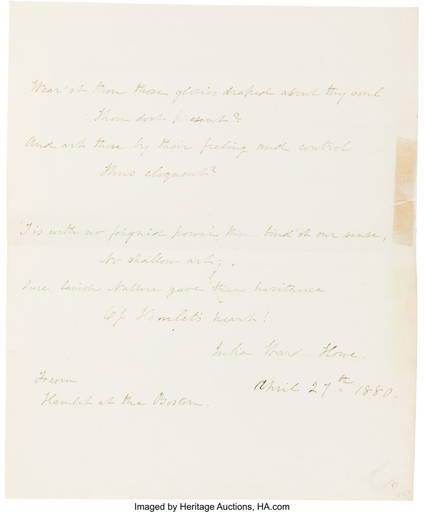 Wear'st thou those glories draped about thy soul
Thou dost present?
And art thou by their feeling and control
Thus eloquent?
'Tis with no feigned power thou bind'st our sense,
No shallow art;
Sure, lavish Nature gave thee heritance
Of Hamlet's heart!
Julia Ward Howe.
April 27th 1880.
From
Hamlet at the Boston.
Imaged by Heritage Auctions, HA.com